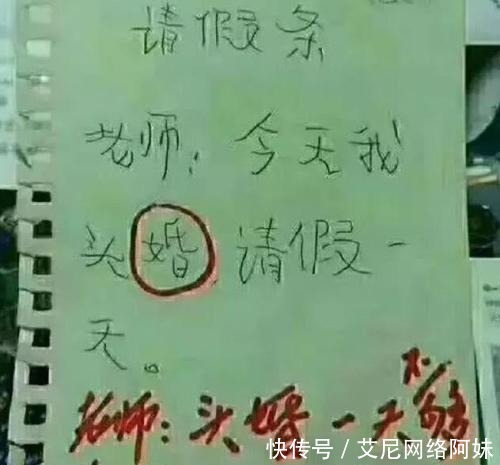 请假条
老师：今天我
头婚，请假一
天。
老师：头婚一天不够
快传号 / 艾尼网络阿妹